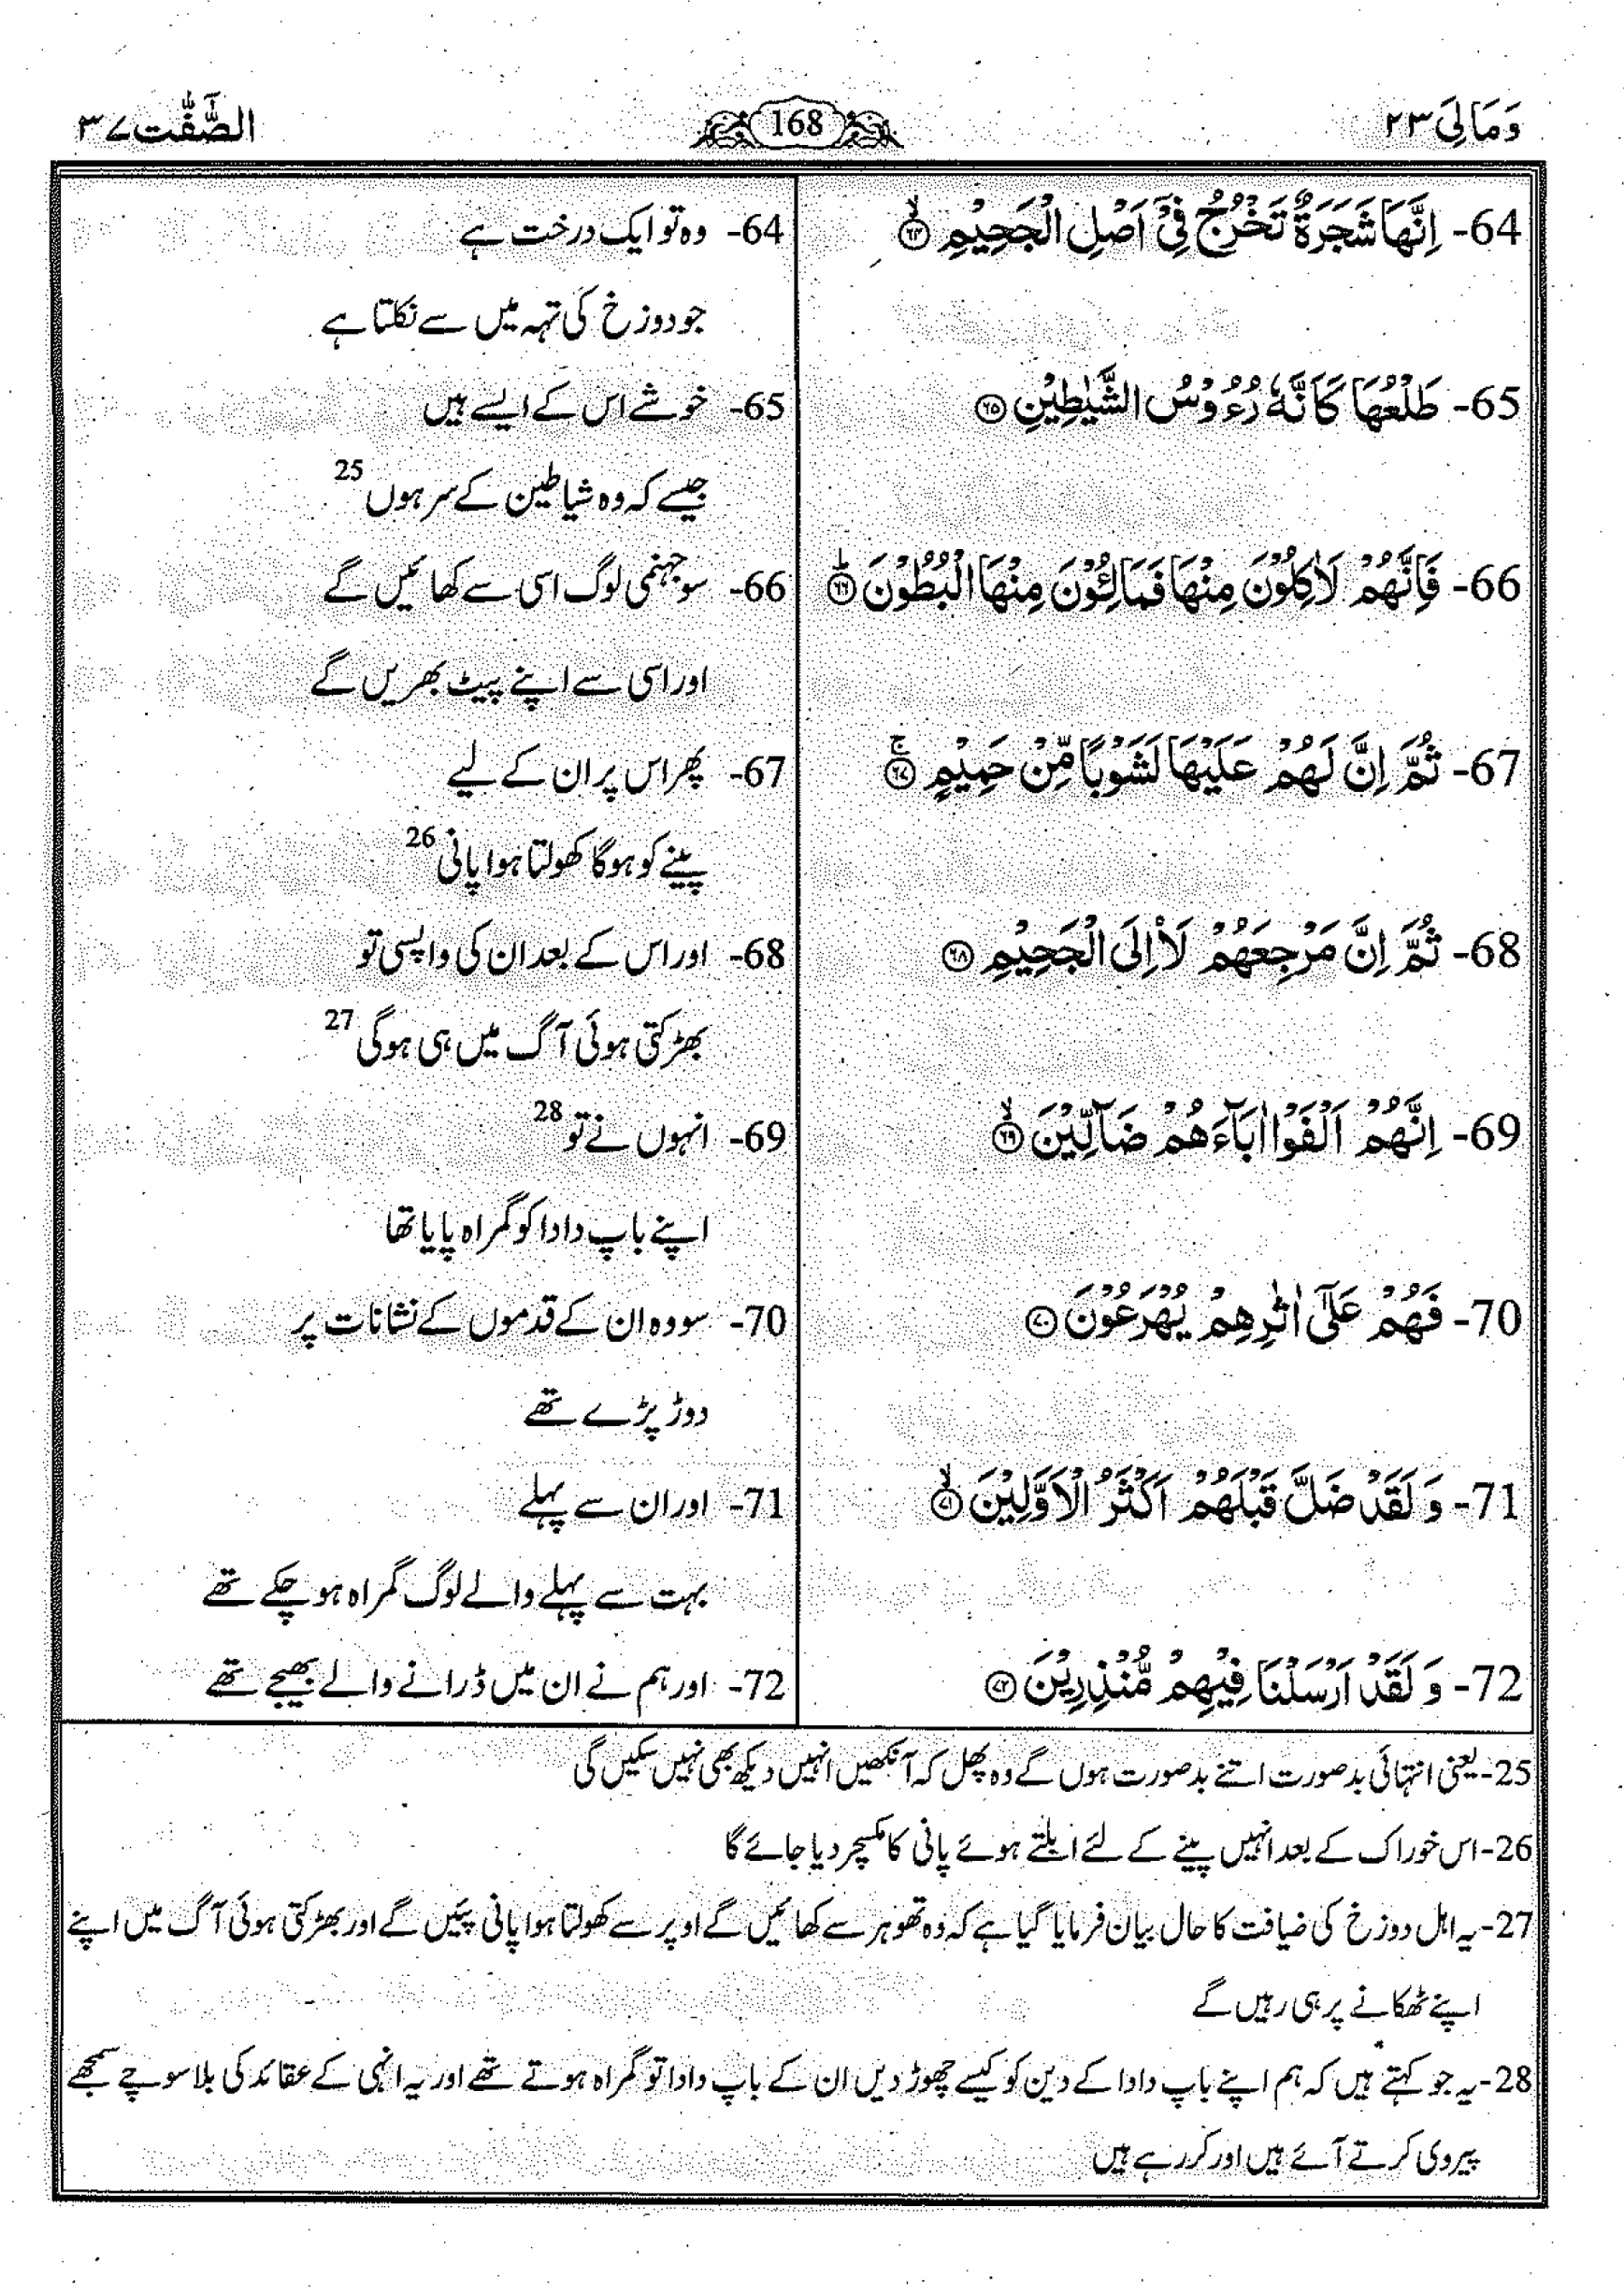 وَمَالِیَ ٢٣
168
الصّٰٓفّٰت ٣٧
64- اِنَّهَا شَجَرَةٌ تَخْرُجُ فِیْۤ اَصْلِ الْجَحِیْمِ ۙ﴿۶۴﴾
64- وہ تو ایک درخت ہے
جو دوزخ کی تہہ میں سے نکلتا ہے
65- طَلْعُهَا كَاَنَّهٗ رُءُوْسُ الشَّیٰطِیْنِ ﴿۶۵﴾
65- خوشے اس کے ایسے ہیں
جیسے کہ وہ شیاطین کے سر ہوں 25
66- فَاِنَّهُمْ لَاٰكِلُوْنَ مِنْهَا فَمَالِـُٔوْنَ مِنْهَا الْبُطُوْنَ ؕ﴿۶۶﴾
66- سو جہنمی لوگ اسی سے کھائیں گے
اور اسی سے اپنے پیٹ بھریں گے
67- ثُمَّ اِنَّ لَهُمْ عَلَیْهَا لَشَوْبًا مِّنْ حَمِیْمٍ ۚ﴿۶۷﴾
67- پھر اس پر ان کے لیے
پینے کو ہوگا کھولتا ہوا پانی 26
68- ثُمَّ اِنَّ مَرْجِعَهُمْ لَاۡاِلَی الْجَحِیْمِ ﴿۶۸﴾
68- اور اس کے بعد ان کی واپسی تو
بھڑکتی ہوئی آگ میں ہی ہوگی 27
69- اِنَّهُمْ اَلْفَوْا اٰبَآءَهُمْ ضَآلِّیْنَ ۙ﴿۶۹﴾
69- انہوں نے تو 28
اپنے باپ دادا کو گمراہ پایا تھا
70- فَهُمْ عَلٰۤی اٰثٰرِهِمْ یُهْرَعُوْنَ ﴿۷۰﴾
70- سو وہ ان کے قدموں کے نشانات پر
دوڑ پڑے تھے
71- وَ لَقَدْ ضَلَّ قَبْلَهُمْ اَكْثَرُ الْاَوَّلِیْنَ ۙ﴿۷۱﴾
71- اور ان سے پہلے
بہت سے پہلے والے لوگ گمراہ ہو چکے تھے
72- وَ لَقَدْ اَرْسَلْنَا فِیْهِمْ مُّنْذِرِیْنَ ﴿۷۲﴾
72- اور ہم نے ان میں ڈرانے والے بھیجے تھے
25- یعنی انتہائی بدصورت اتنے بدصورت ہوں گے وہ پھل کہ آنکھیں انہیں دیکھ بھی نہیں سکیں گی
26- اس خوراک کے بعد انہیں پینے کے لئے ابلتے ہوئے پانی کا مکسچر دیا جائے گا
27- یہ اہل دوزخ کی ضیافت کا حال بیان فرمایا گیا ہے کہ وہ تھوہر سے کھائیں گے اوپر سے کھولتا ہوا پانی پئیں گے اور بھڑکتی ہوئی آگ میں اپنے
اپنے ٹھکانے پر ہی رہیں گے
28- یہ جو کہتے ہیں کہ ہم اپنے باپ دادا کے دین کو کیسے چھوڑ دیں ان کے باپ دادا تو گمراہ ہوتے تھے اور یہ انہی کے عقائد کی بلا سوچے سمجھے
پیروی کرتے آئے ہیں اور کر رہے ہیں